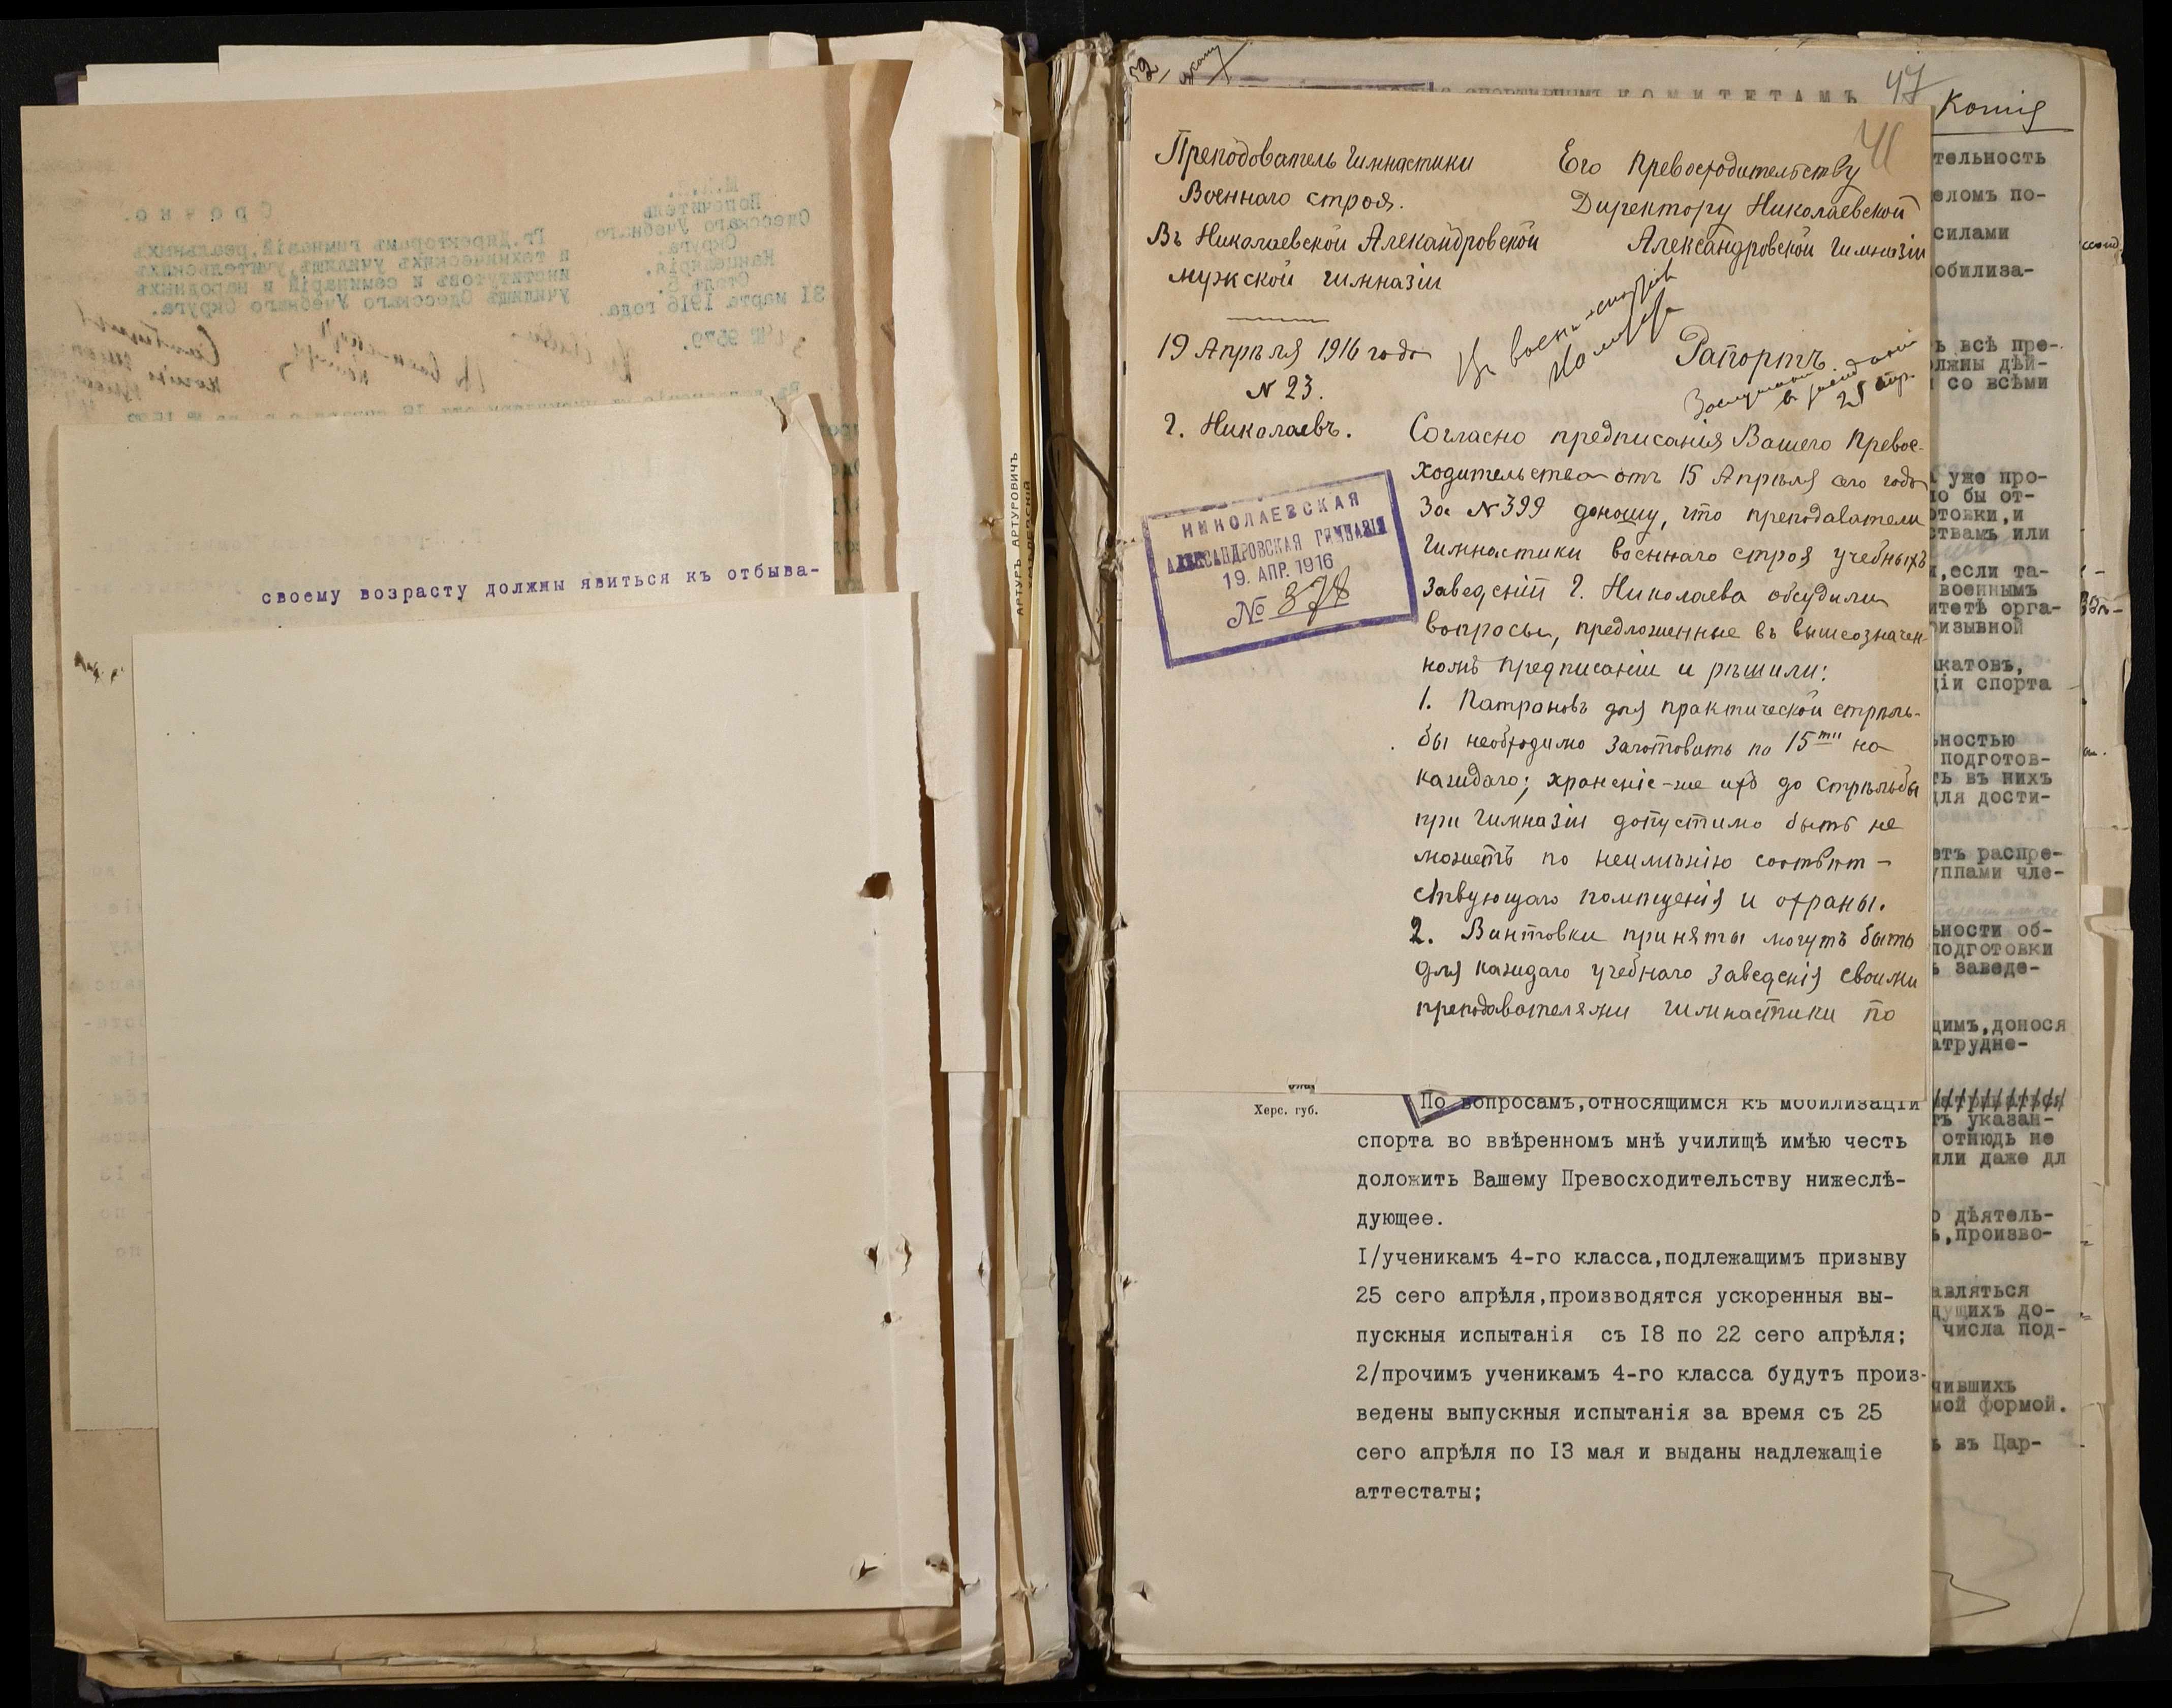 Срочно.
М.Н.П.
Попечитель
Одесскаго Учебнаго
Округа.
Канцелярія.
Столъ 2.
31 марта 1916 года.
№ 9579.
Гг.Директорамъ гимназій,реальныхъ
и техническихъ училищъ,учительскихъ
институтовъ и семинарій и народныхъ
училищъ Одесскаго Учебнаго Округа.
своему возрасту должны явиться къ отбыва-
АРТУРЪ АРТУРОВИЧЪ
47
КОМИТЕТАМЪ
Копія
41
Преподователь Гимнастики
Военнаго строя.
Въ Николаевской Александровской
мужской гимназіи
19 Апрѣля 1916 года
N 23.
г. Николаевъ.
Его Превосходительству
Директору Николаевской
Александровской Гимназіи
Въ военно-спортив
Рапортъ.
25 апр.
НИКОЛАЕВСКАЯ
АЛЕКСАНДРОВСКАЯ ГИМНАЗІЯ
19. АПР. 1916
№ 378
Согласно предписанія Вашего Превос-
ходительства отъ 15 Апрѣля сего года
За N 399 доношу, что преподаватели
Гимнастики военнаго строя учебныхъ
Заведеній г. Николаева обсудили
вопросы, предложенные въ вышеозначен-
номъ предписаніи и рѣшили:
1. Патроновъ для практической стрѣль-
бы необходимо заготовить по 15ти на
каждаго; храненіе-же ихъ до стрѣльбы
при Гимназіи допустимо быть не
можетъ по неимѣнію соотвѣт-
ствующаго помѣщенія и охраны.
2. Винтовки приняты могутъ быть
для каждаго учебнаго заведенія своими
преподавателями гимнастики по
Херс. губ.
По вопросамъ,относящимся къ мобилизаціи
спорта во ввѣренномъ мнѣ училищѣ имѣю честь
доложить Вашему Превосходительству нижеслѣ-
дующее.
I/ученикамъ 4-го класса,подлежащимъ призыву
25 сего апрѣля,производятся ускоренныя вы-
пускныя испытанія съ I8 по 22 сего апрѣля;
2/прочимъ ученикамъ 4-го класса будутъ произ-
ведены выпускныя испытанія за время съ 25
сего апрѣля по I3 мая и выданы надлежащіе
аттестаты;
тельность
еломъ по-
силами
обилиза-
ъ всѣ пре-
олжны дѣй-
со всѣми
уже про-
ло бы от-
отовки,и
ствамъ или
и,если та-
военнымъ
итетѣ орга-
ризывной
акатовъ,
ціи спорта
ьностью
подготов-
ть въ нихъ
для дости-
етъ распре-
уппами чле-
ьности об-
подготовки
ъ заведе-
щимъ,донося
атрудне-
ть указан-
отнюдь не
или даже дл
о дѣятель-
ь,произво-
авляться
дущихъ до-
числа под-
чившихъ
мой формой.
ь въ Цар-